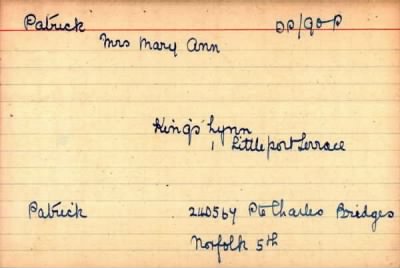 Patrick DP/90P
Mrs Mary Ann
King's Lynn
1 Littleport Terrace
Patrick 240567 Pte Charles Bridges
Norfolk 5th